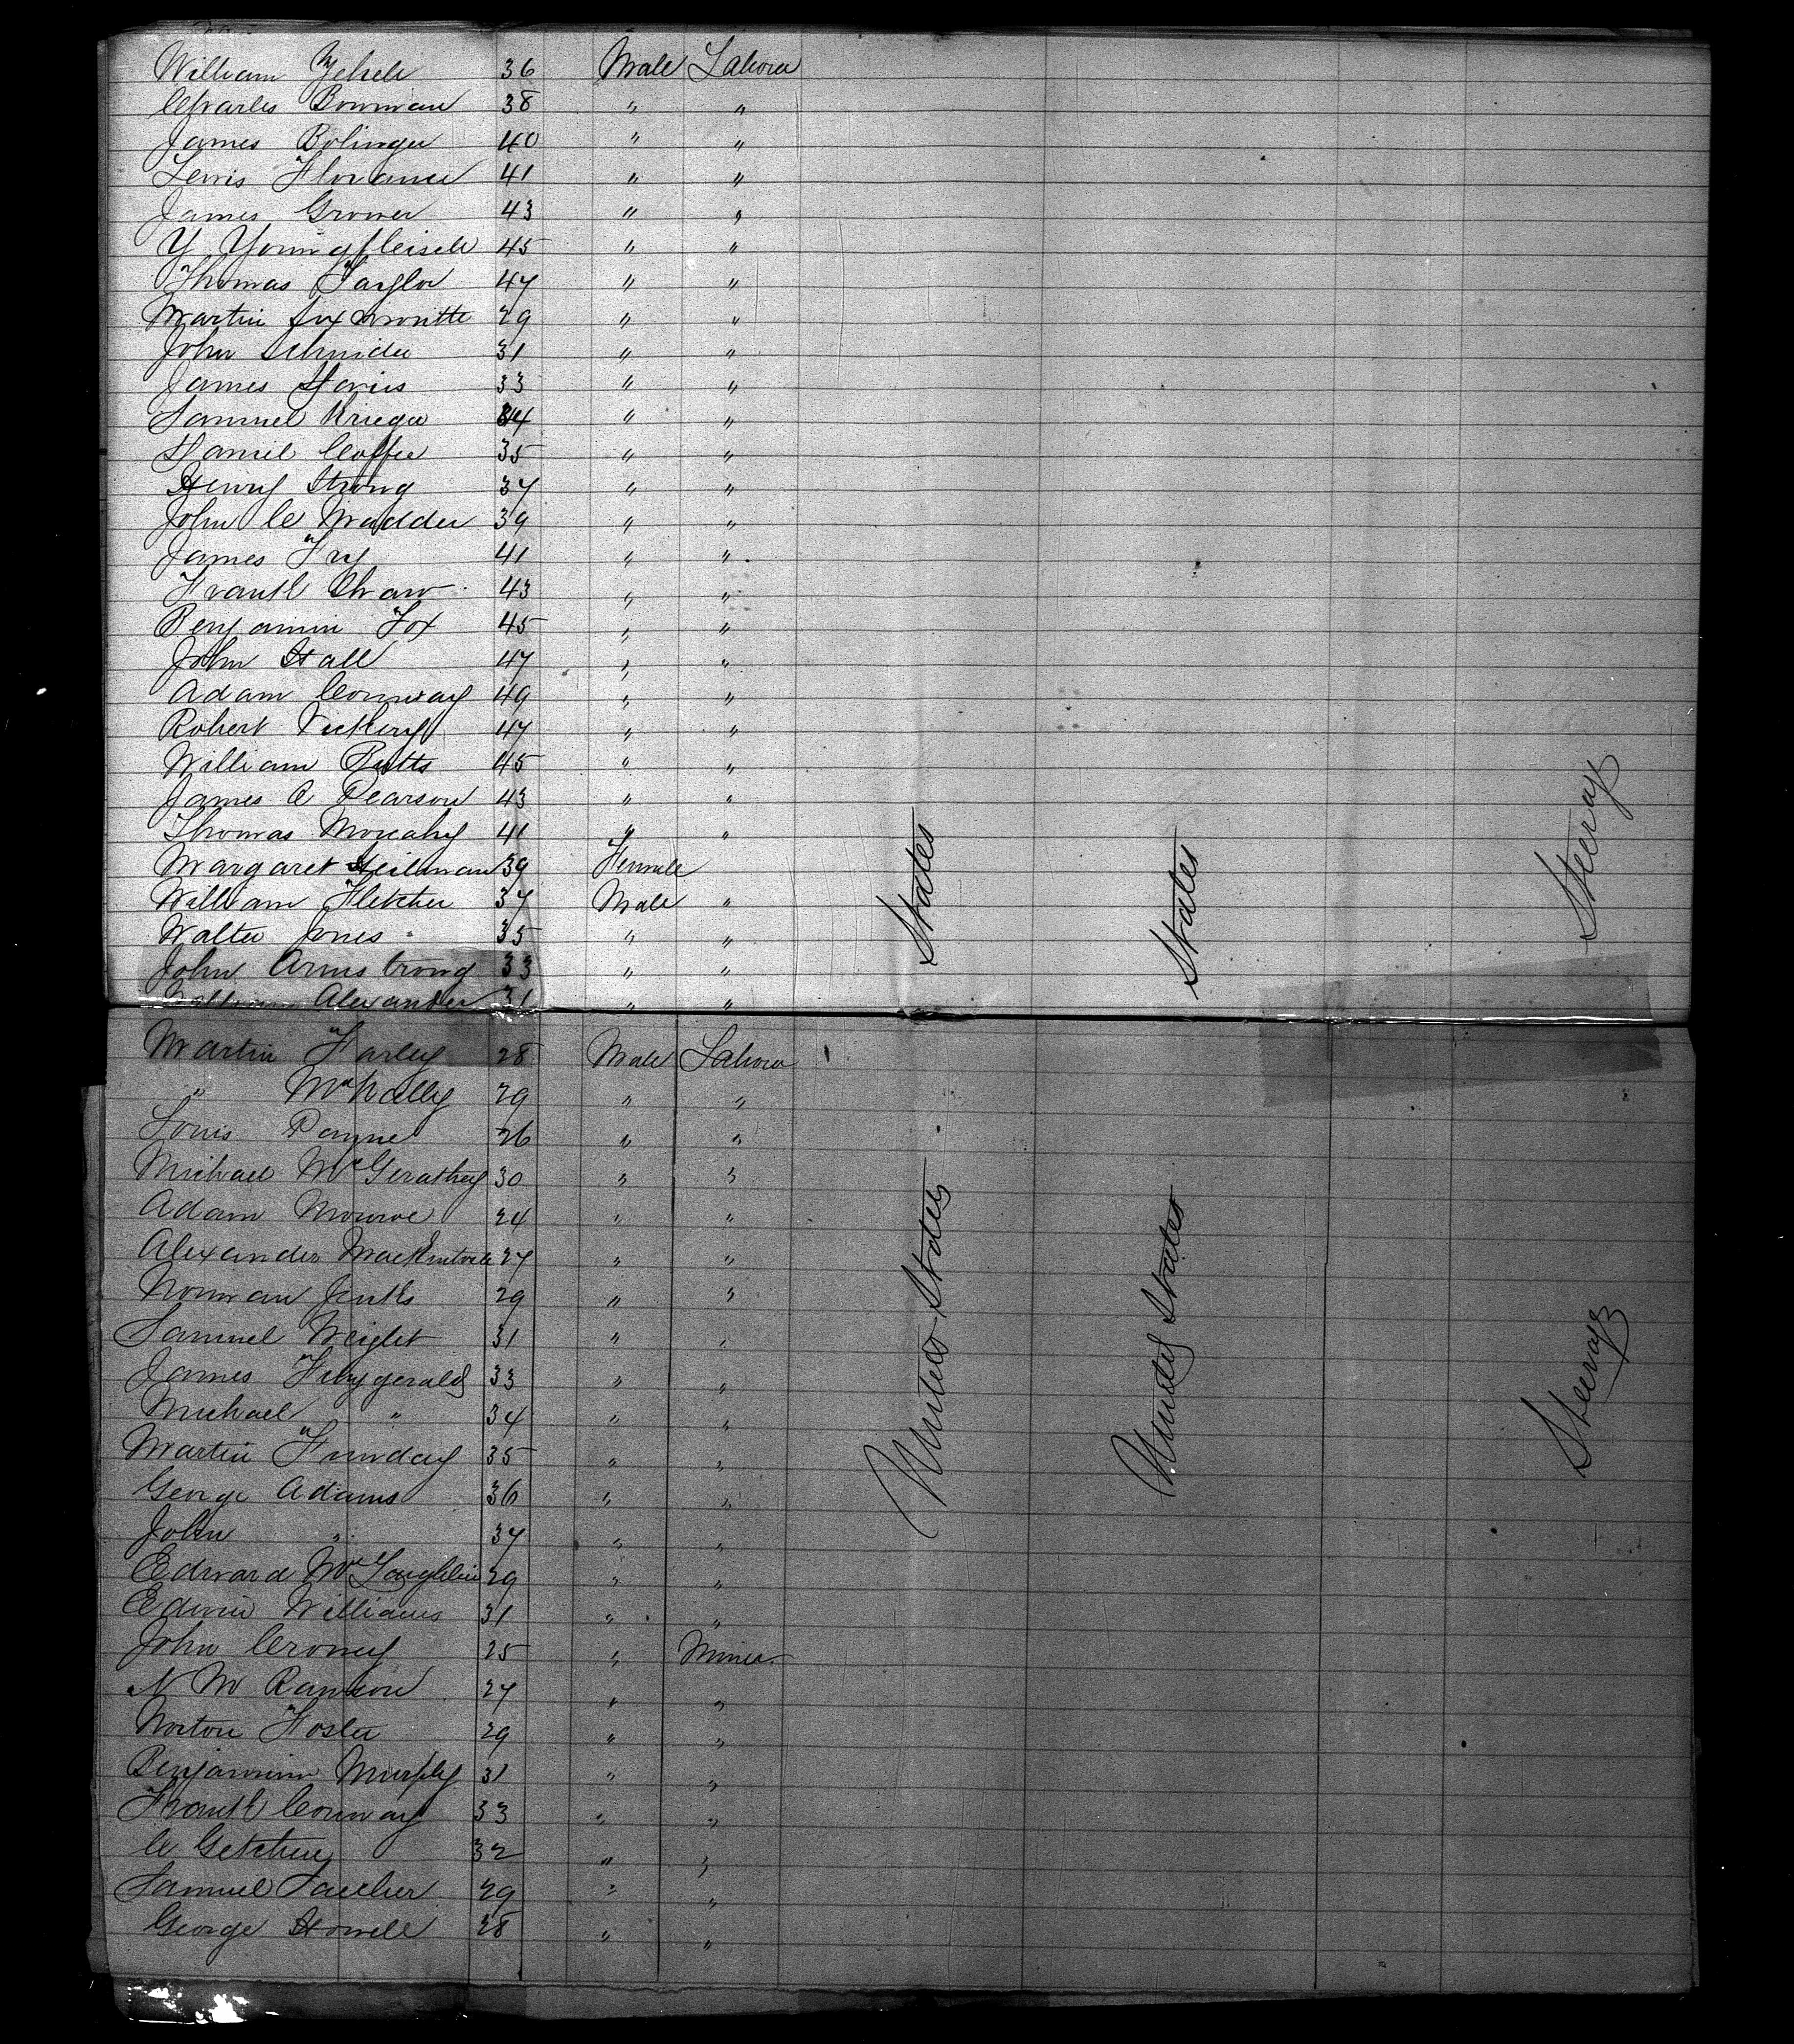 William 36 Male Labora
Charles Bowman 38 " "
James Bolinger 40 " "
Lewis Florance 41 " "
James Grover 43 " "
Y Youngfleisch 45 " "
Thomas Taylor 47 " "
Martin 29 " "
John Schnider 31 " "
James Harris 33 " "
Samuel Krieger 34 " "
Daniel Coffee 35 " "
Henry Strong 37 " "
John C Madder 39 " "
James Fry 41 " "
Frank Shaw 43 " "
Benjamin Fox 45 " "
John Hall 47 " "
Adam Conway 49 " "
Robert Vickery 47 " "
William Butts 45 " "
James A Pearson 43 " "
Thomas Moucahy 41 " "
Margaret Heilman 39 Female
William Fletcher 37 Male "
Walter Jones 35 " "
John Armstrong 33 " "
Alexander 31 " "
States
States
Steerag
Martin Farley 28 Male Labora
" McNally 29 " "
Louis Payne 26 " "
Michael McGerathey 30 " "
Adam Monroe 24 " "
Alexander 27 " "
Norman Jenks 29 " "
Samuel Wright 31 " "
James Fitzgerald 33 " "
Michael " 34 " "
Martin Funday 35 " "
George Adams 36 " "
John " 37 " "
Edward McLaughlin 29 " "
Edwin Williams 31 " "
John Croney 25 " Miner
N M Ransom 27 " "
Norton Foster 29 " "
Benjaminn Murphy 31 " "
Frank Conway 33 " "
C Getchey 32 " "
Samuel 29 " "
George Howell 28 " "
United States
United States
Steerage